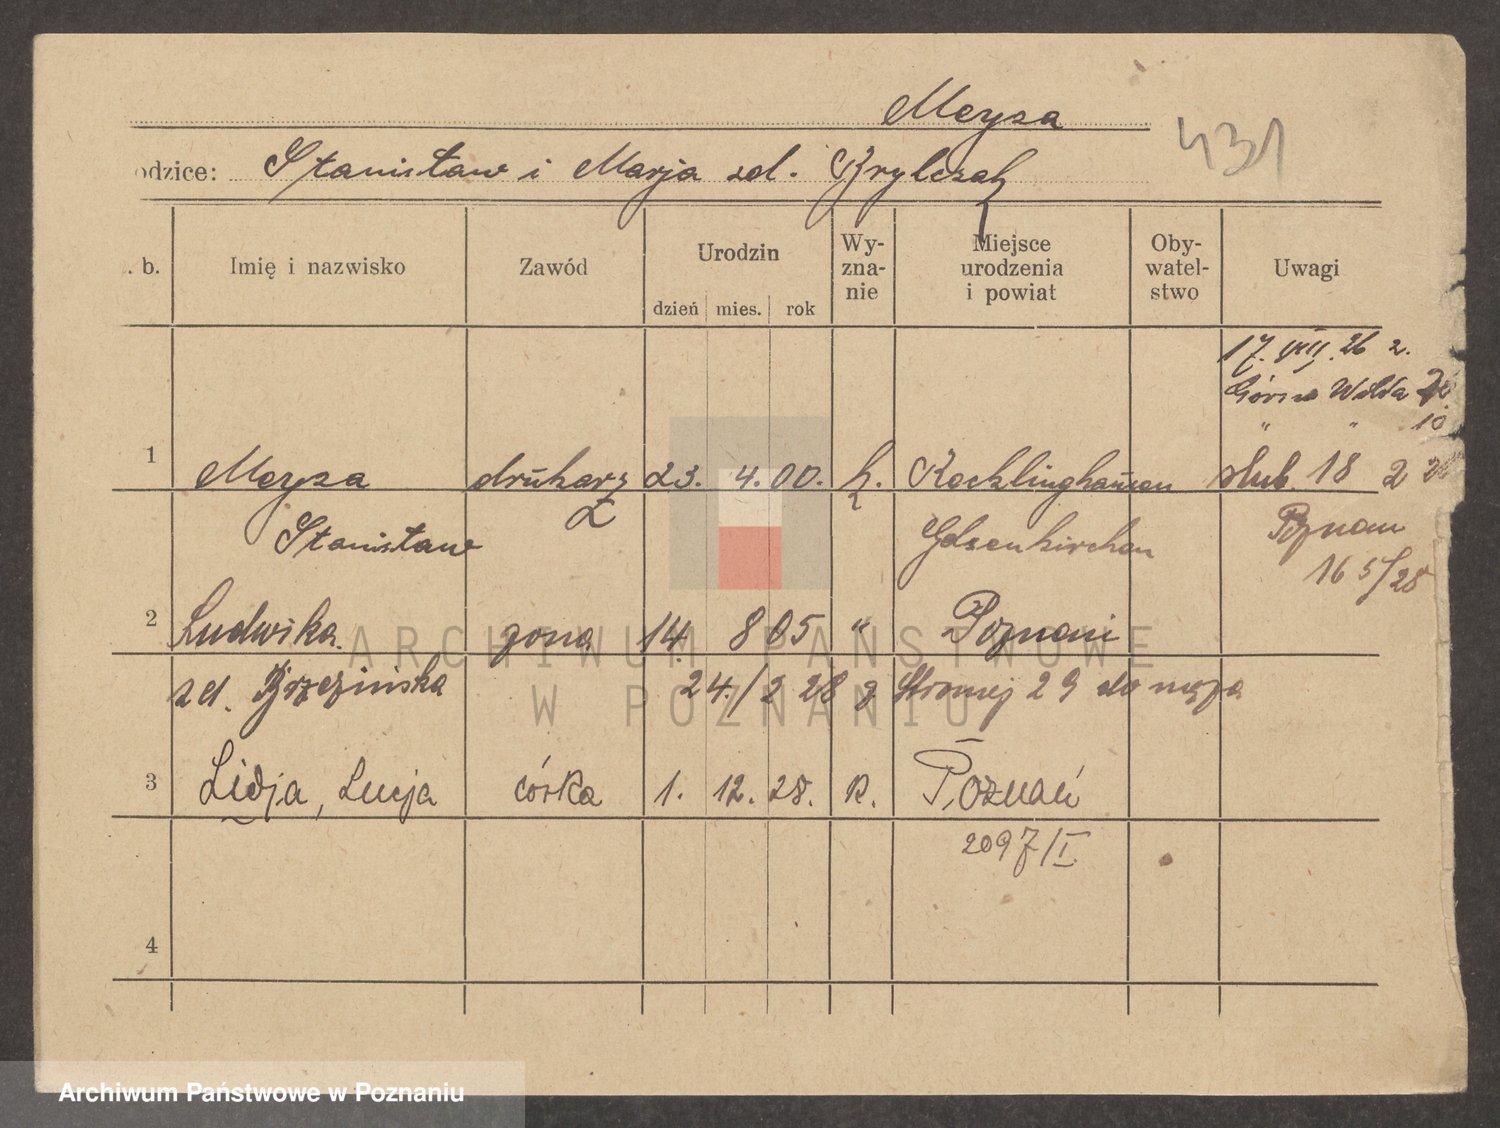 Meysa
431
odzice: Stanisław i Marja zd. Krylczak
. b.
Imię i nazwisko
Zawód
Urodzin
dzień mies. rok
Wy-
zna-
nie
Miejsce
urodzenia
i powiat
Oby-
watel-
stwo
Uwagi
17. VIII. 26 z.
Górna Wilda
" " 10
1 Meysa drukarz 23. 4. 00. k. Recklinghausen ślub. 18 2
Stanisław Gelsenkirchen Poznan
16 5/28
2 Ludwika żona 14. 8 05 " Poznani
zd. Brzezińska 24./2 28 z Stromej 29 do męża
3 Lidja, Lucja córka 1. 12. 28. k. Poznań
2097/I
4
ARCHIWUM PAŃSTWOWE
W POZNANIU
Archiwum Państwowe w Poznaniu